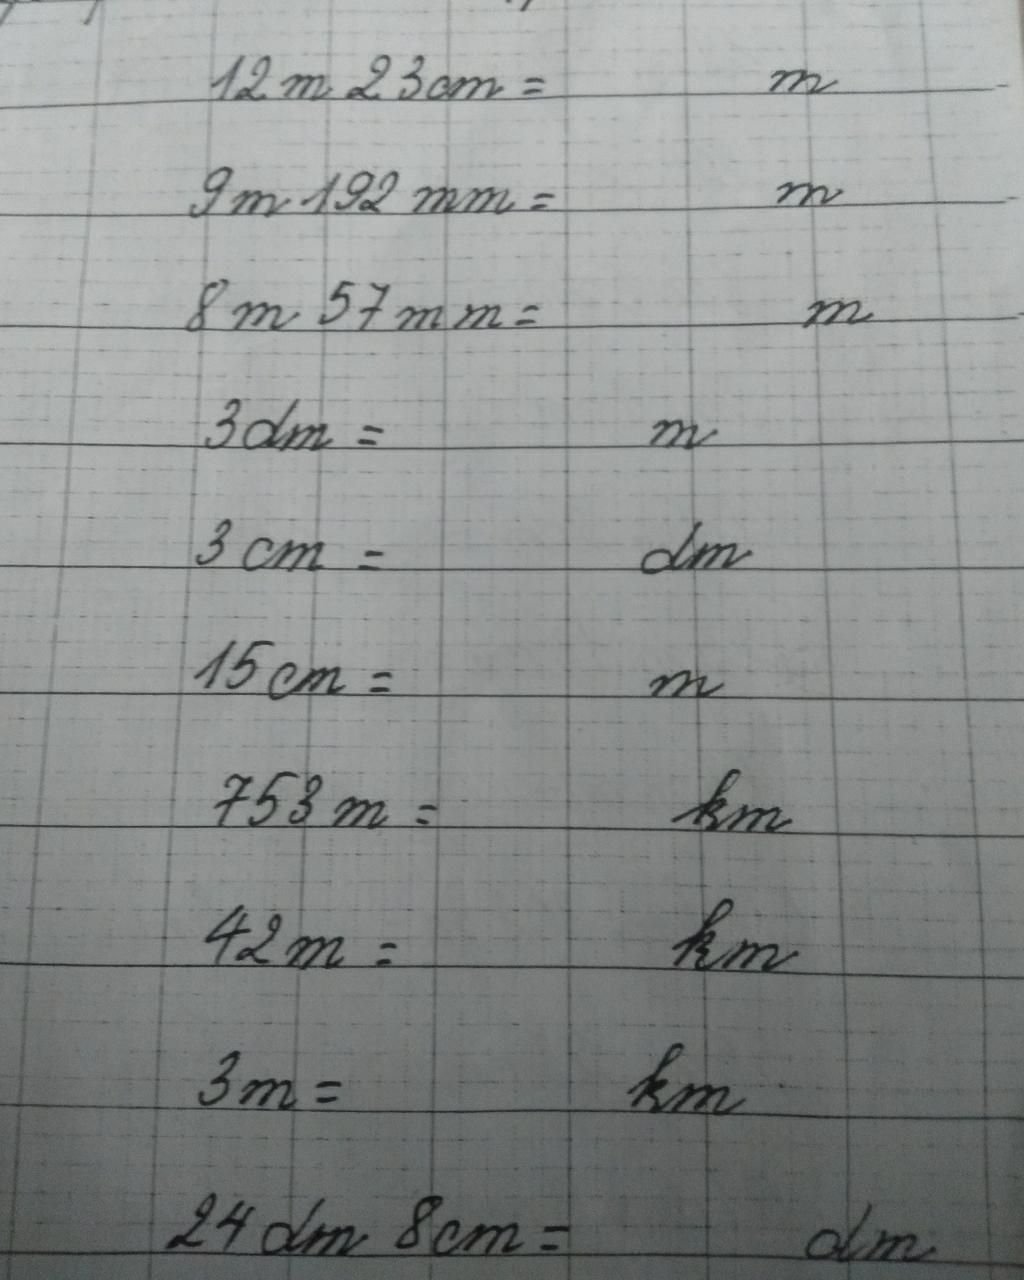 12 m 23cm = m
9m 192 mm = m
8 m 57 mm = m
3dm = m
3 cm = dm
15cm = m
753 m = km
42m = km
3m = km
24 dm 8cm = dm